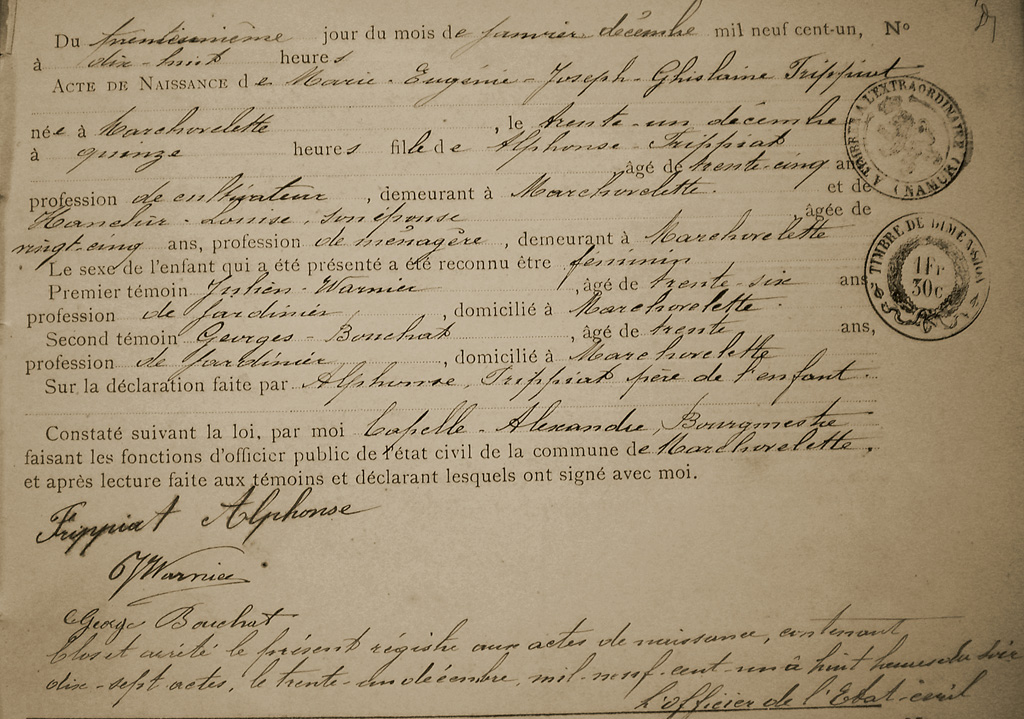 Du trenteunième jour du mois de janvier décembre mil neuf cent-un, N°
à dix-huit heures
ACTE DE NAISSANCE de Marie-Eugénie-Joseph-Ghislaine Frippiat
née à Marchovelette, le trente-un décembre
à quinze heures fille de Alphonse Frippiat
âgé de trente-cinq ans
profession de cultivateur, demeurant à Marchovelette. et de
Louise, son épouse âgée de
vingt-cinq ans, profession de ménagère, demeurant à Marchovelette
Le sexe de l'enfant qui a été présenté a été reconnu être féminin
Premier témoin Julien Warnier, âgé de trente-six ans
profession de jardinier, domicilié à Marchovelette.
Second témoin Georges-Bouchat, âgé de trente ans,
profession de jardinier, domicilié à Marchovelette
Sur la déclaration faite par Alphonse, Frippiat père de l'enfant.
Constaté suivant la loi, par moi Capelle-Alexandre, Bourgmestre
faisant les fonctions d'officier public de l'état civil de la commune de Marchovelette,
et après lecture faite aux témoins et déclarant lesquels ont signé avec moi.
Frippiat Alphonse
J Warnier
George Bouchat
Clos et arrêté le présent régistre aux actes de naissance, contenant
dix-sept actes, le trente-un décembre, mil-neuf-cent-un à huit heures du soir
L'officier de l'Etat-civil
TIMBRE A L'EXTRAORDINAIRE
A (NAMUR)
TIMBRE DE DIMENSION
1 Fr
30 c